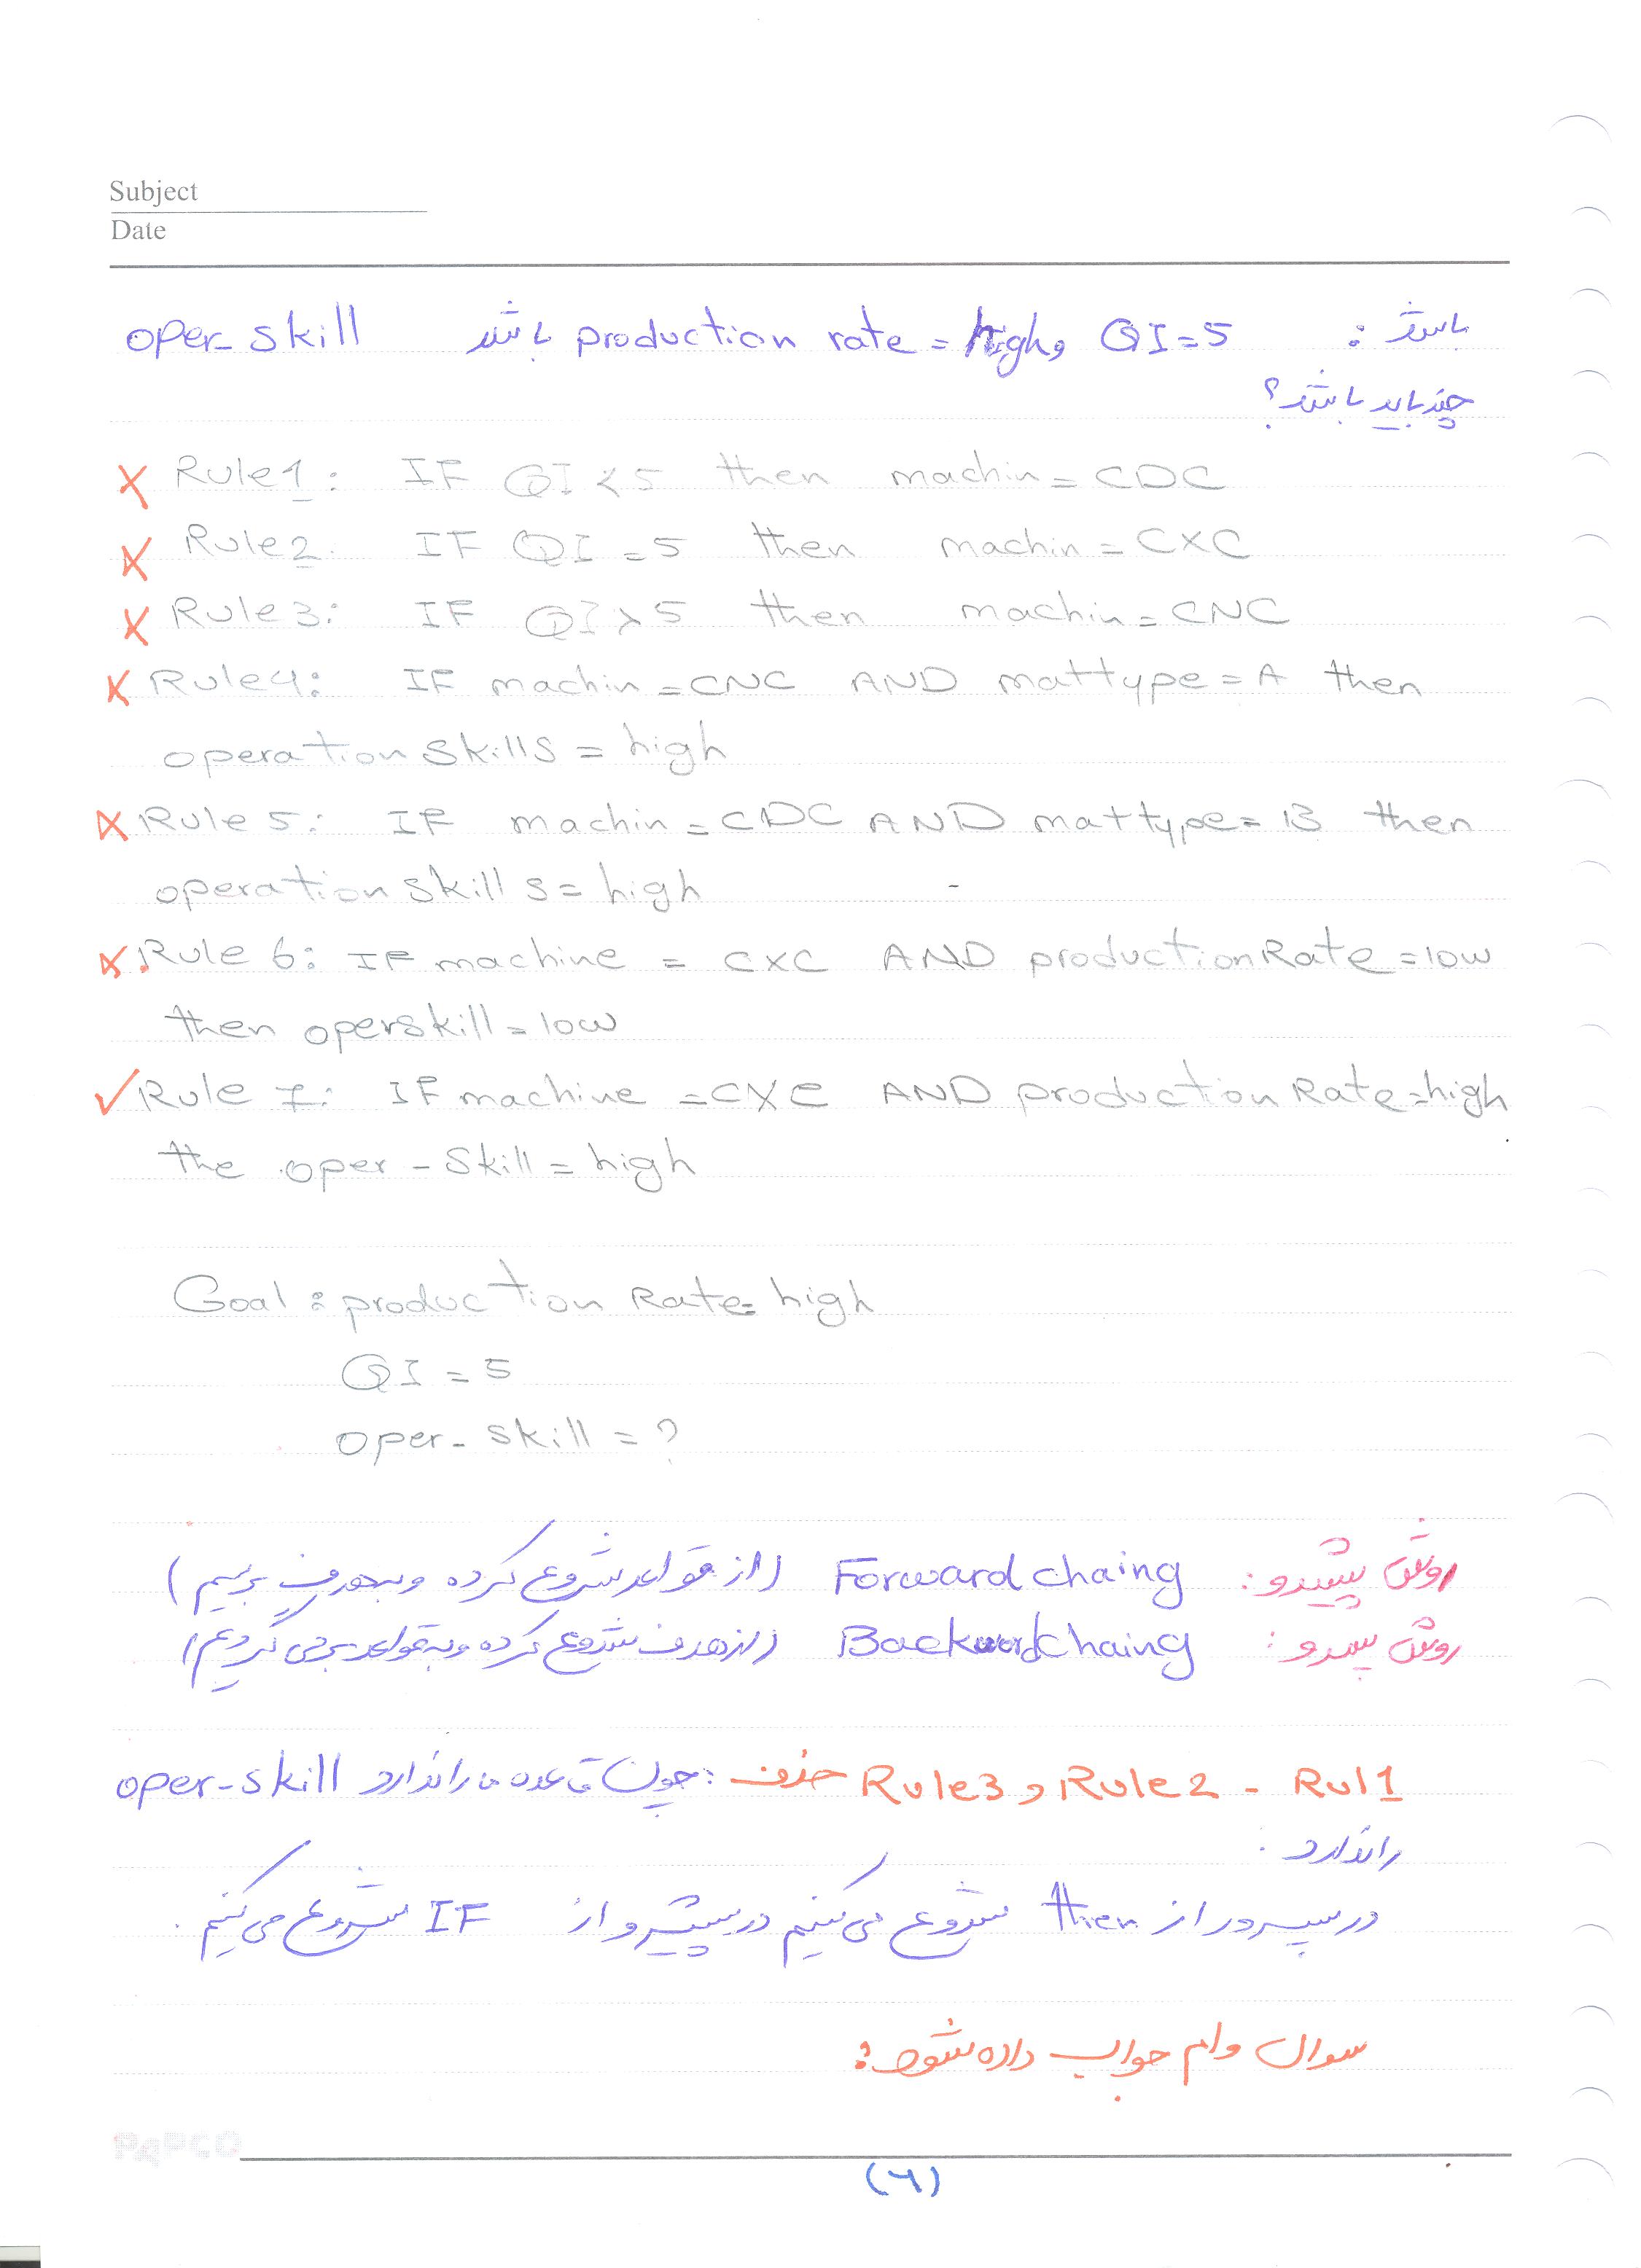 Subject
Date
باشد : QI=5 و production rate = high باشد oper-skill
چند باید باشد؟
Rule1: IF QI<5 then machin=CDC
Rule2. IF QI=5 then machin=CXC
Rule3: IF QI>5 then machin=CNC
Rule4: IF machin=CNC AND mattype=A then
operation skills = high
Rule 5: IF machin=CDC AND mattype=B then
operation skills=high
Rule 6: IF machine = CXC AND productionRate=low
then operskill=low
Rule 7: IF machine =CXC AND production Rate=high
the oper-skill=high
Goal : production Rate=high
QI=5
oper-skill=?
روش پیشرو : Forward chaing (از قواعد شروع کرده و بهدف برسیم)
روش پسرو : Backwordchaing (از هدف شروع کرده و به قواعد برمی گردیم)
Rul1 - Rule2 و Rule3 حذف : چون قاعده ما را ندارد oper-skill
را ندارد .
در پسرو از then شروع می کنیم در پیشرو از IF شروع می کنیم .
سوال وام جواب داده شود :
PAPCO
(۶)